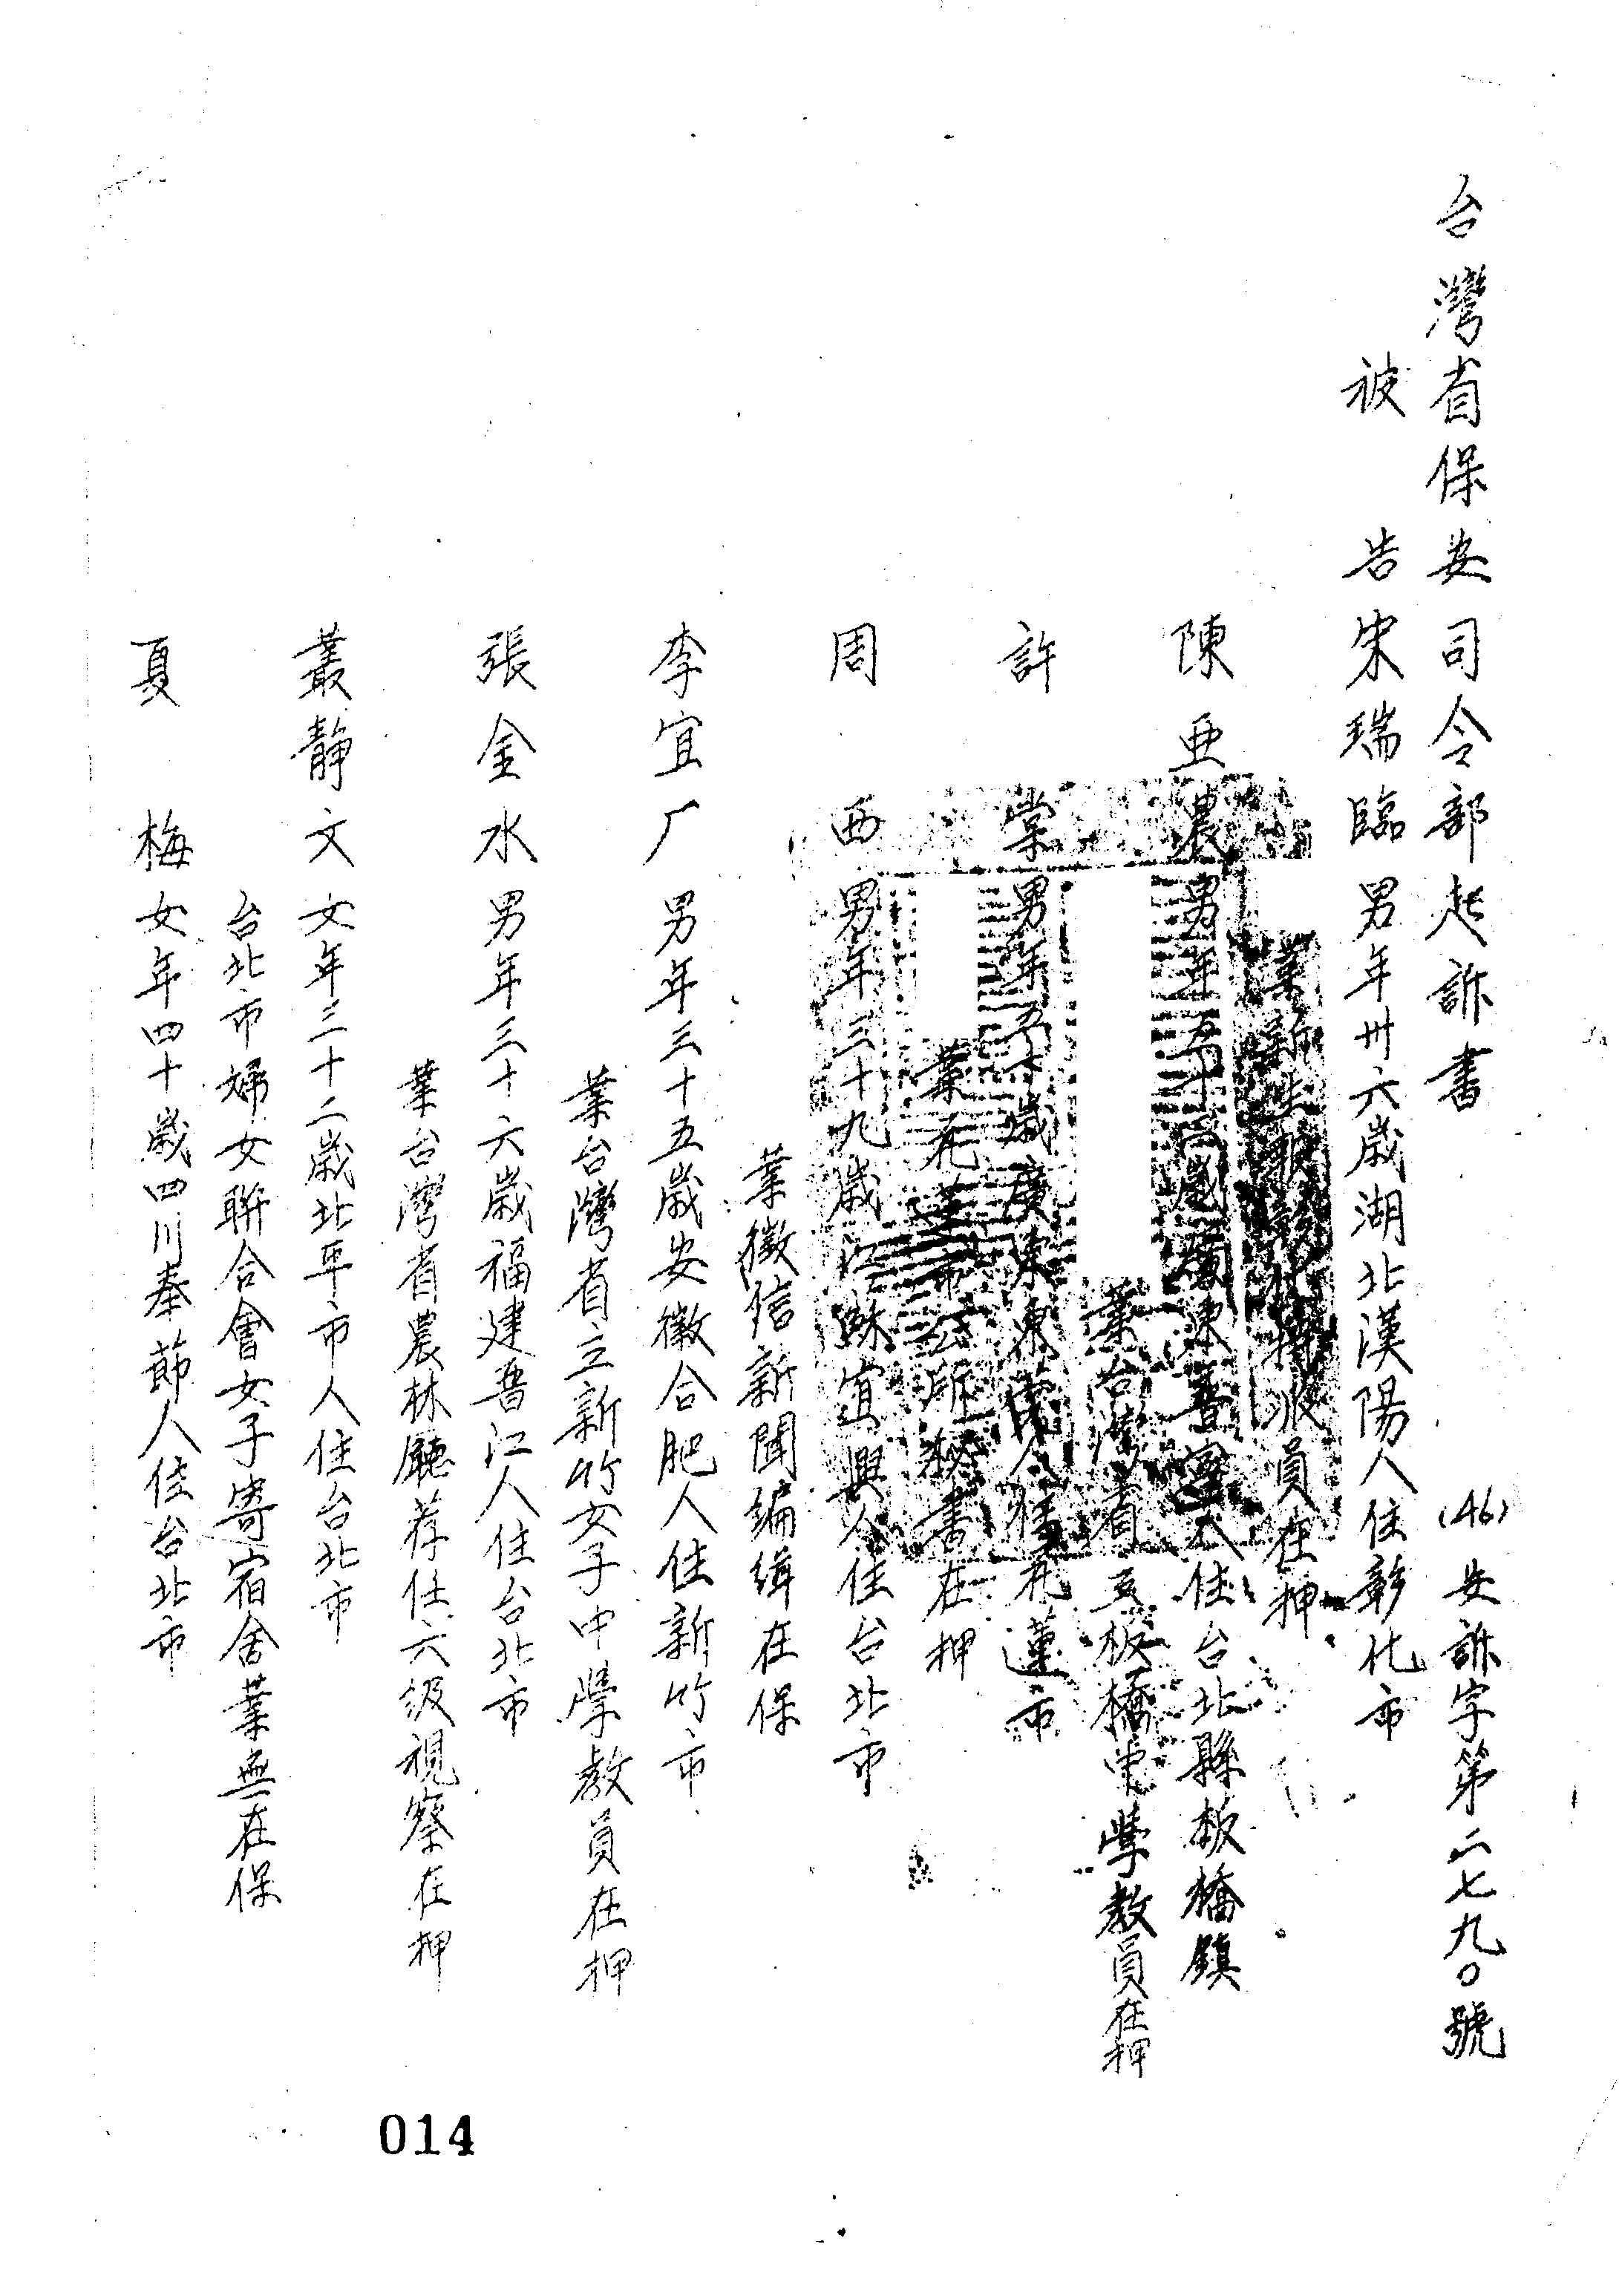 台灣省保安司令部起訴書 (46)安訴字第二七九〇號
被告宋瑞臨 男年卅六歲湖北漢陽人住彰化市
業新生報彰化 員在押
陳亜農 男年五十 歲廣東普寧人住台北縣板橋鎮
業台灣省立板橋中學教員在押
許 棠 男年五十歲廣東東莞人住花蓮市
業花蓮市公所秘書在押
周 西 男年三十九歲江蘇宜興人住台北市
業徵信新聞編緝在保
李宜厂 男年三十五歲安徽合肥人住新竹市
業台灣省立新竹女子中學教員在押
張金水 男年三十六歲福建晋江人住台北市
業台灣省農林廳荐任六級視察在押
叢靜文 女年三十二歲北平市人住台北市
台北市婦女聯合會女子寄宿舍業無在保
夏 梅 女年四十歲四川奉節人住台北市
014